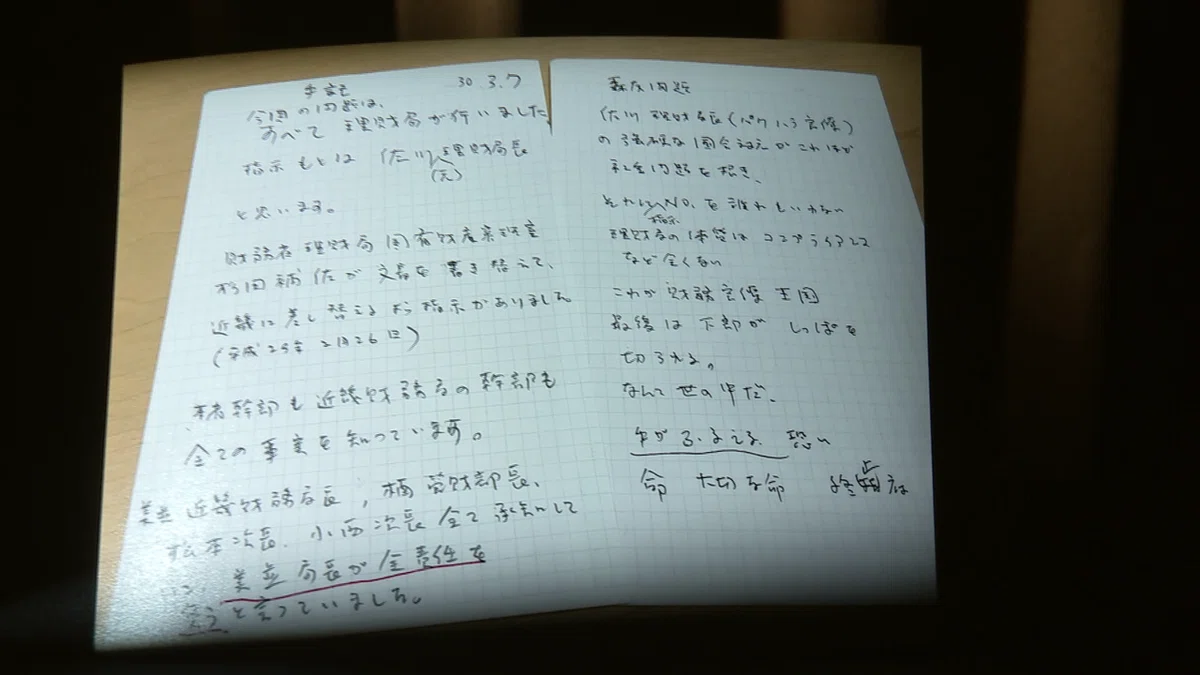 手記 30.3.7
今回の問題は、
すべて 理財局が行いました
指示もとは 佐川 理財局長
(元)
と思います。
財務省理財局 国有財産業務室
杉田補佐が 文書を書き換えて、
近畿に差し替えるよう指示がありました
(平成29年 2月26日)
本省幹部も近畿財務局の幹部も
全ての事実を知っています。
美並 近畿財務局長、楠 管財部長、
松本次長、小西次長 全て承知して
美並 局長が全責任を
負うと言っていました。
森友問題
佐川 理財局長(パワハラ官僚)
の強硬な国会答弁がこれほど
社会問題を招き、
それにNO.を誰れもいわない
指示
理財局の体質は コンプライアンス
など全くない
これが財務官僚王国
最後は下部がしっぽを
切られる。
なんて世の中だ、
手がふるえる、恐い
命 大切な命 終止